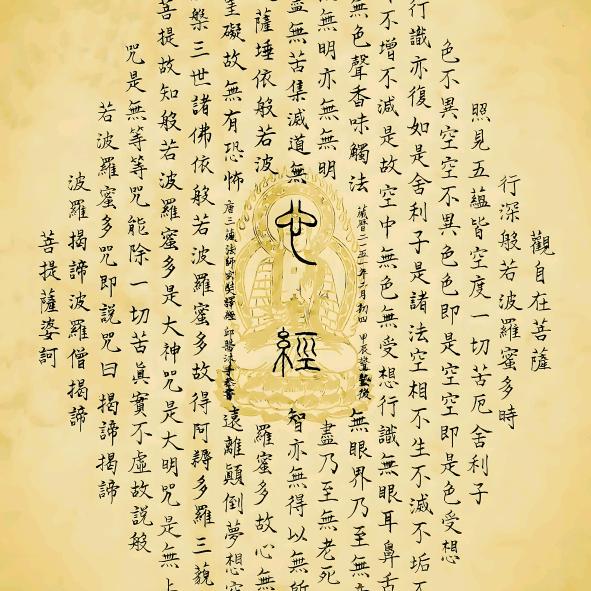 觀自在菩薩
行深般若波羅蜜多時
照見五蘊皆空度一切苦厄舍利子
色不異空空不異色色即是空空即是色受想
行識亦復如是舍利子是諸法空相不生不滅不垢不
不增不減是故空中無色無受想行識無眼耳鼻舌
無色聲香味觸法
無眼界乃至無
無明亦無無明
盡乃至無老死
盡無苦集滅道無
智亦無得以無所
心經
藏曆二一五一年二月初四 甲辰
唐三藏法師玄奘譯經
薩埵依般若波
羅蜜多故心無
罣礙故無有恐怖
遠離顛倒夢想究
槃三世諸佛依般若波羅蜜多故得阿耨多羅三藐
菩提故知般若波羅蜜多是大神咒是大明咒是無上
咒是無等等咒能除一切苦真實不虛故說般
若波羅蜜多咒即說咒曰揭諦揭諦
波羅揭諦波羅僧揭諦
菩提薩婆訶